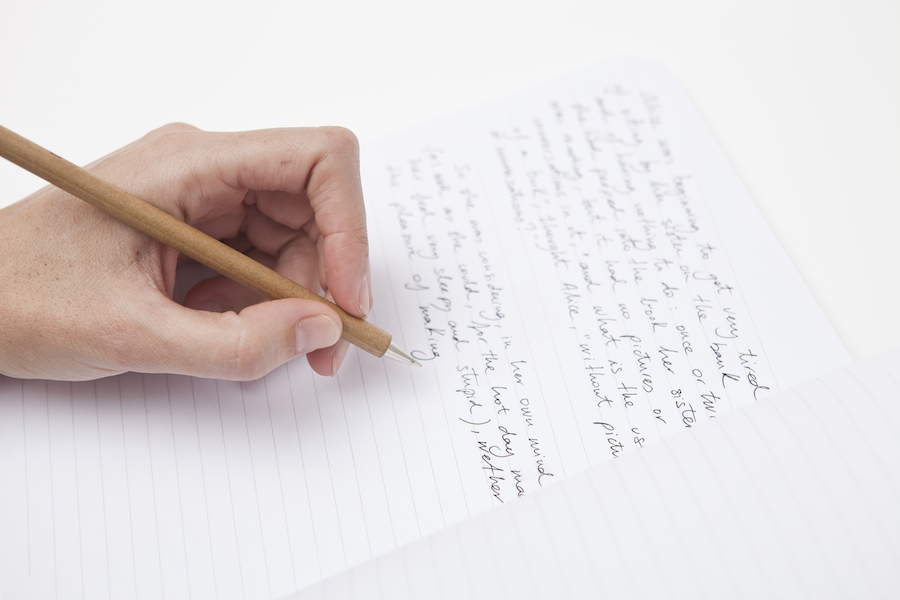 Alice was beginning to get very tired
of sitting by her sister on the bank
and of having nothing to do: once or tw
the book her sister
but it had no pictures or
in it, and what is the us
of a book, thought Alice, without pictu
So she was considering, in her own mind
(as well as she could, for the hot day ma
her feel very sleepy and stupid), wether
the pleasure of making